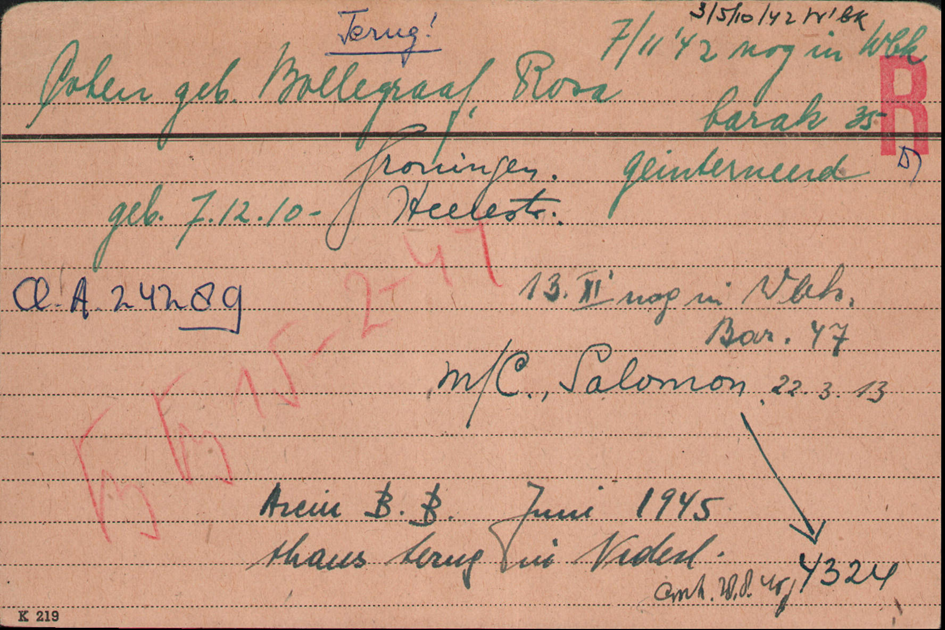 Terug!
3/5/10/42 W'BK
7/11 '42 nog in Wbk
Cohen geb. Bollegraaf, Rosa
R
barak 35
Groningen. geinterneerd
geb. 7.12.10- Heerestr.
15-2-47
Cl. A. 24289
13. XI nog in Wbk.
Bar. 47
m/C., Salomon, 22.3.13
B. B. Juni 1945
thans terug in Nederl.
4324
K 219